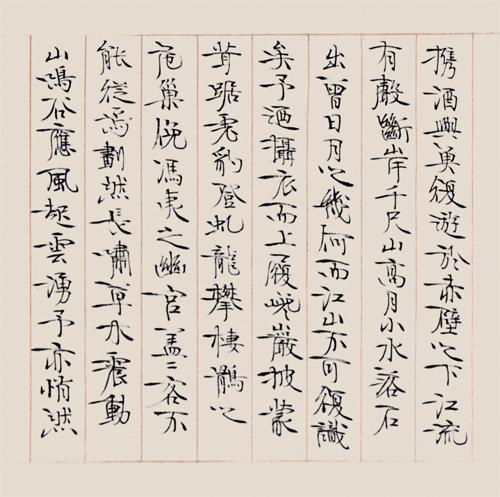 携酒與魚復遊於赤壁之下江流
有聲斷岸千尺山高月小水落石
出曾日月之幾何而江山不可復識
矣予迺攝衣而上履巉巖披蒙
茸踞虎豹登虬龍攀棲鶻之
危巢俛馮夷之幽宮盖二客不
能從焉劃然長嘯草木震動
山鳴谷應風起雲湧予亦悄然